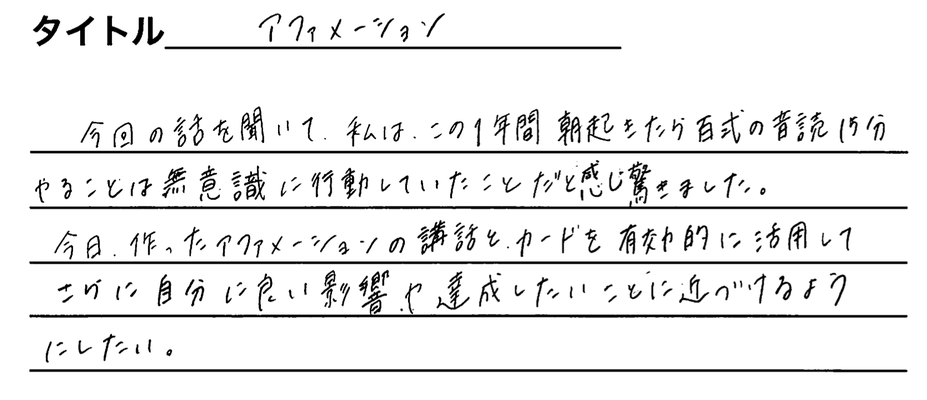 タイトル アファメーション
今回の話を聞いて、私は、この1年間 朝起きたら百式の音読15分
やることは無意識に行動していたことだと感じ驚きました。
今日、作ったアファメーションの講話と、カードを有効的に活用して
さらに自分に良い影響や達成したいことに近づけるよう
にしたい。